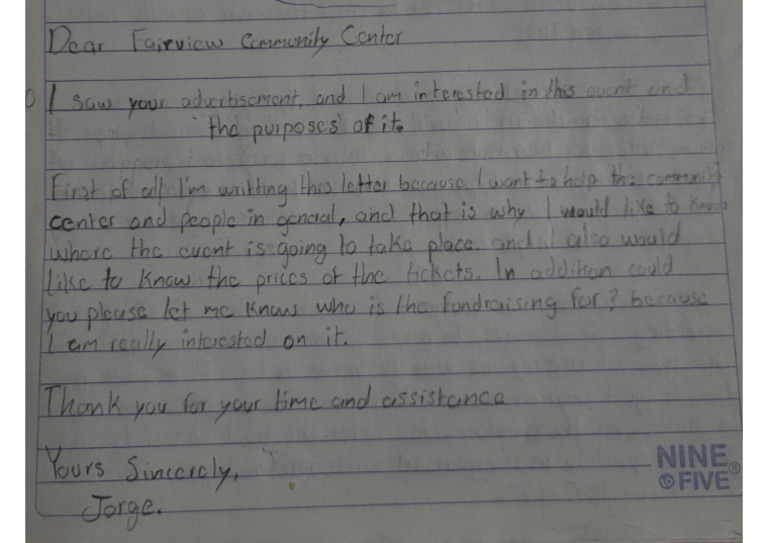 Dear Fairview Community Center
I saw your advertisement, and I am interested in this event and
the purposes of it.
First of all I'm writting this letter because I want to help the community
center and people in general, and that is why I would like to know
where the event is going to take place. and I also would
like to know the prices of the tickets. In addition could
you please let me know who is the fundraising for? because
I am really interested on it.
Thank you for your time and assistance
Yours Sincerely,
Jorge.
NINE
TO FIVE®